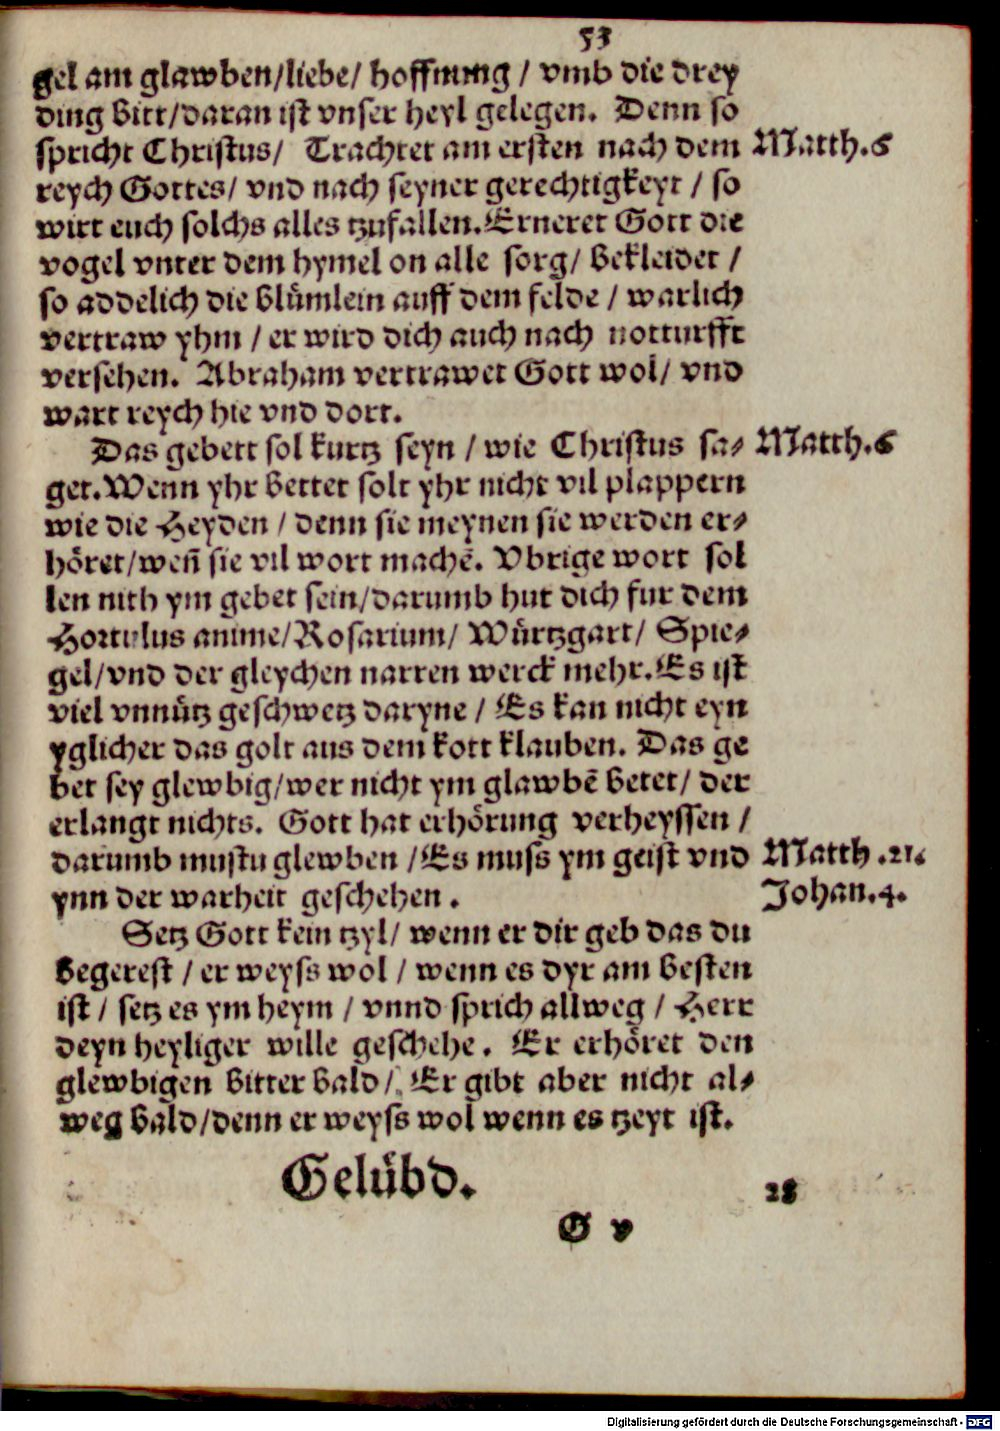 53
gel am glawben/liebe/ hoffnung / vmb die drey
ding bitt/daran ist vnser heyl gelegen. Denn so
spricht Christus/ Trachtet am ersten nach dem Matth.6
reych Gottes/ vnd nach seyner gerechtigkeyt / so
wirt euch solchs alles tzufallen.Erneret Gott die
vogel vnter dem hymel on alle sorg/ bekleidet /
so addelich die blůmlein auff dem felde / warlich
vertraw yhm / er wird dich auch nach notturfft
versehen. Abraham vertrawet Gott wol/ vnd
wart reych hie vnd dort.
Das gebett sol kurtz seyn / wie Christus sa⸗ Matth.6
get.Wenn yhr bettet solt yhr nicht vil plappern
wie die Heyden / denn sie meynen sie werden er⸗
hoͤret/weñ sie vil wort machē. Vbrige wort sol
len nith ym gebet sein/darumb hut dich fur dem
Hortulus anime/Rosarium/ Wuͤrtzgart/ Spie⸗
gel/vnd der gleychen narren werck mehr.Es ist
viel vnnuͤtz geschwetz daryne / Es kan nicht eyn
yglicher das golt aus dem kott klauben. Das ge
bet sey glewbig/wer nicht ym glawbē betet/ der
erlangt nichts. Gott hat erhoͤrung verheyssen /
darumb mustu glewben /Es muss ym geist vnd Matth .21.
ynn der warheit geschehen . Johan.4.
Setz Gott kein tzyl/ wenn er dir geb das du
begerest / er weyss wol / wenn es dyr am besten
ist / setz es ym heym / vnnd sprich allweg / Herr
deyn heyliger wille geschehe. Er erhoͤret den
glewbigen bitter bald/ Er gibt aber nicht al⸗
weg bald/denn er weyss wol wenn es tzeyt ist.
Geluͤbd. 28
G v
Digitalisierung gefördert durch die Deutsche Forschungsgemeinschaft - DFG